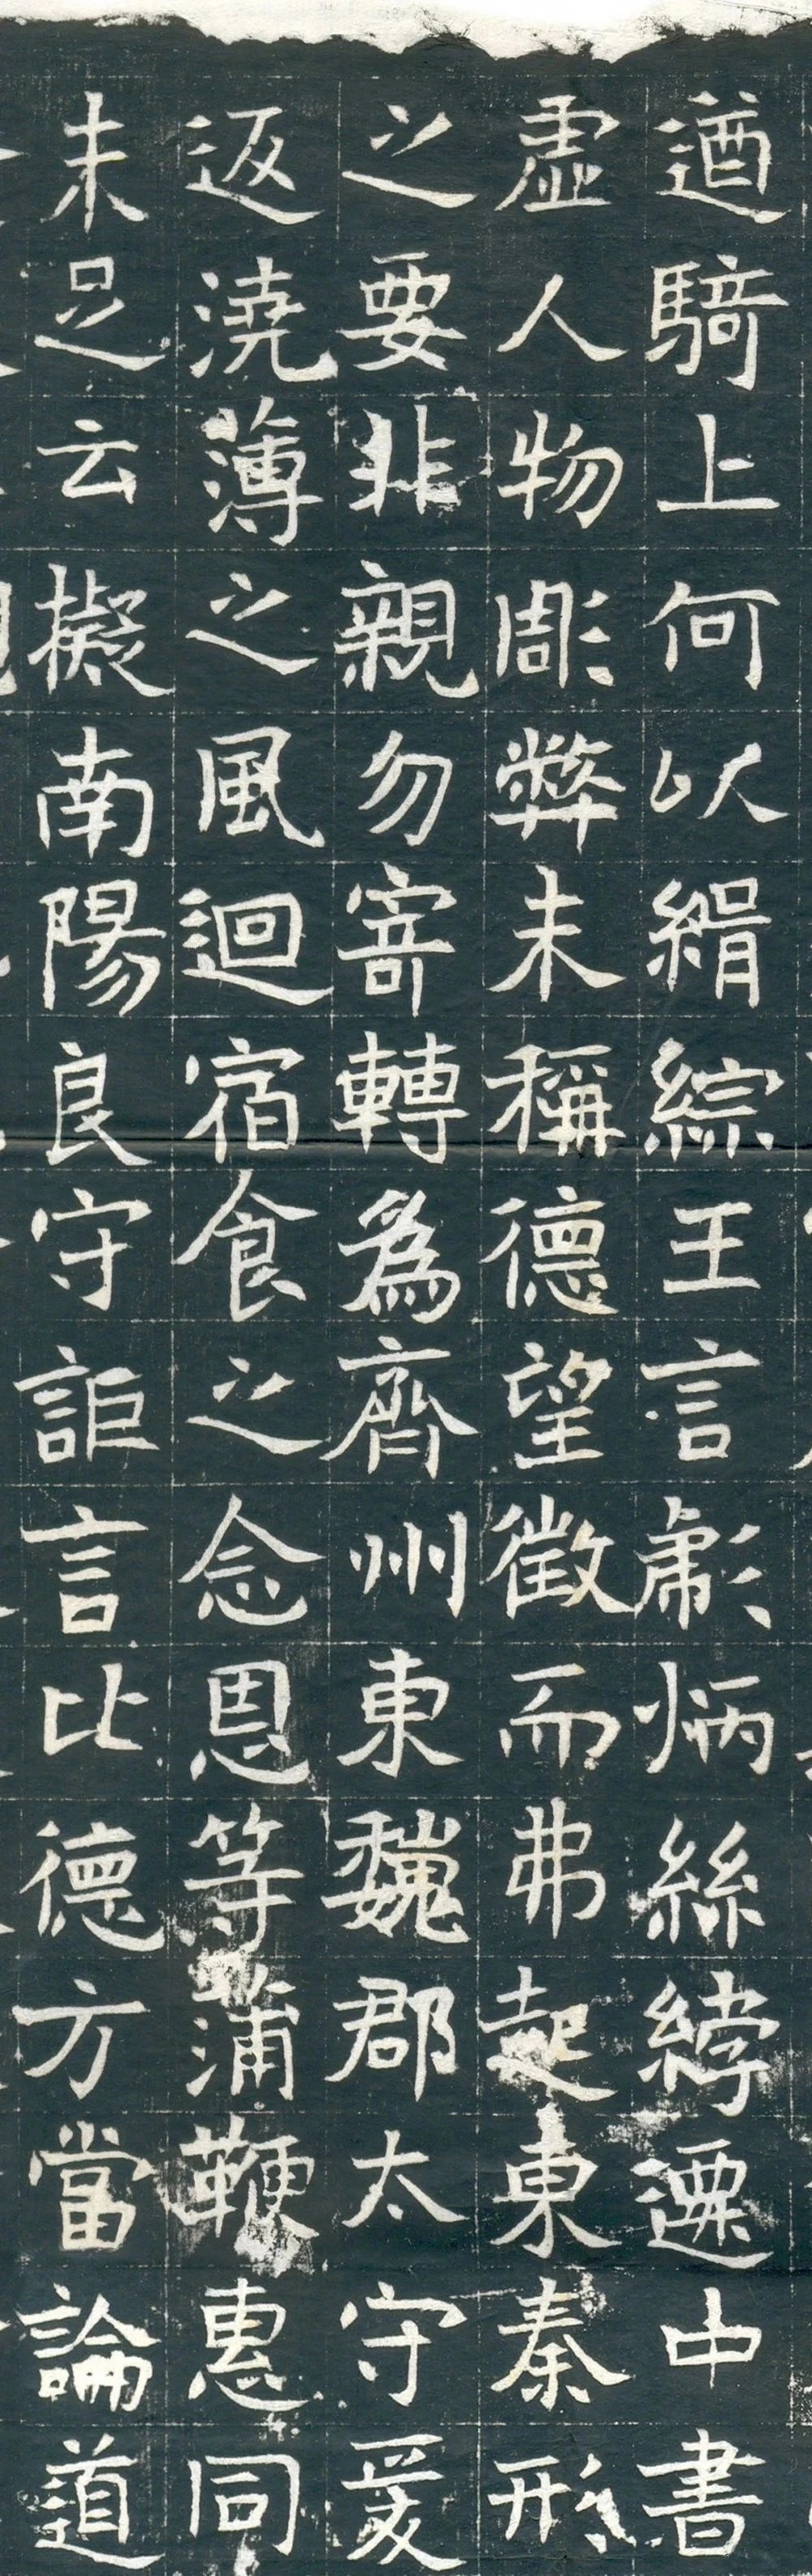 遒騎上何以緝綜王言彪炳絲綍遷中書
虛人物彫弊未稱德望徵而弗起東秦形
之要非親勿寄轉為齊州東魏郡太守爰
返澆薄之風迴宿食之念恩等蒲鞭惠同
未足云擬南陽良守詎言比德方當論道